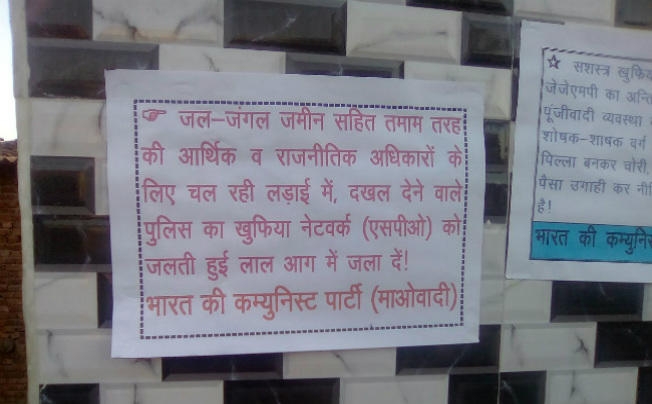 ☞ जल–जंगल जमीन सहित तमाम तरह
की आर्थिक व राजनीतिक अधिकारों के
लिए चल रही लड़ाई में, दखल देने वाले
पुलिस का खुफिया नेटवर्क (एसपीओ) को
जलती हुई लाल आग में जला दें!
भारत की कम्युनिस्ट पार्टी (माओवादी)
☆ सशस्त्र
जेजेएमपी का
पूंजीवादी व्यवस्था
शोषक-शाषक वर्ग
पिल्ला बनकर चोरी,
पैसा उगाही कर
है!
भारत की